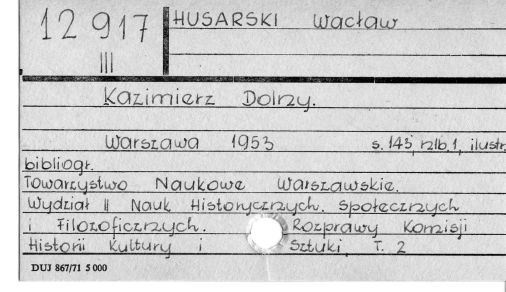 12 917
III
HUSARSKI Wacław
Kazimierz Dolny.
Warszawa 1953 s. 143, nlb. 1, ilustr.
bibliogr.
Towarzystwo Naukowe Warszawskie.
Wydział II Nauk Historycznych, Społecznych
i Filozoficznych. Rozprawy Komisji
Historii Kultury i Sztuki, T. 2
DUJ 867/71 5 000